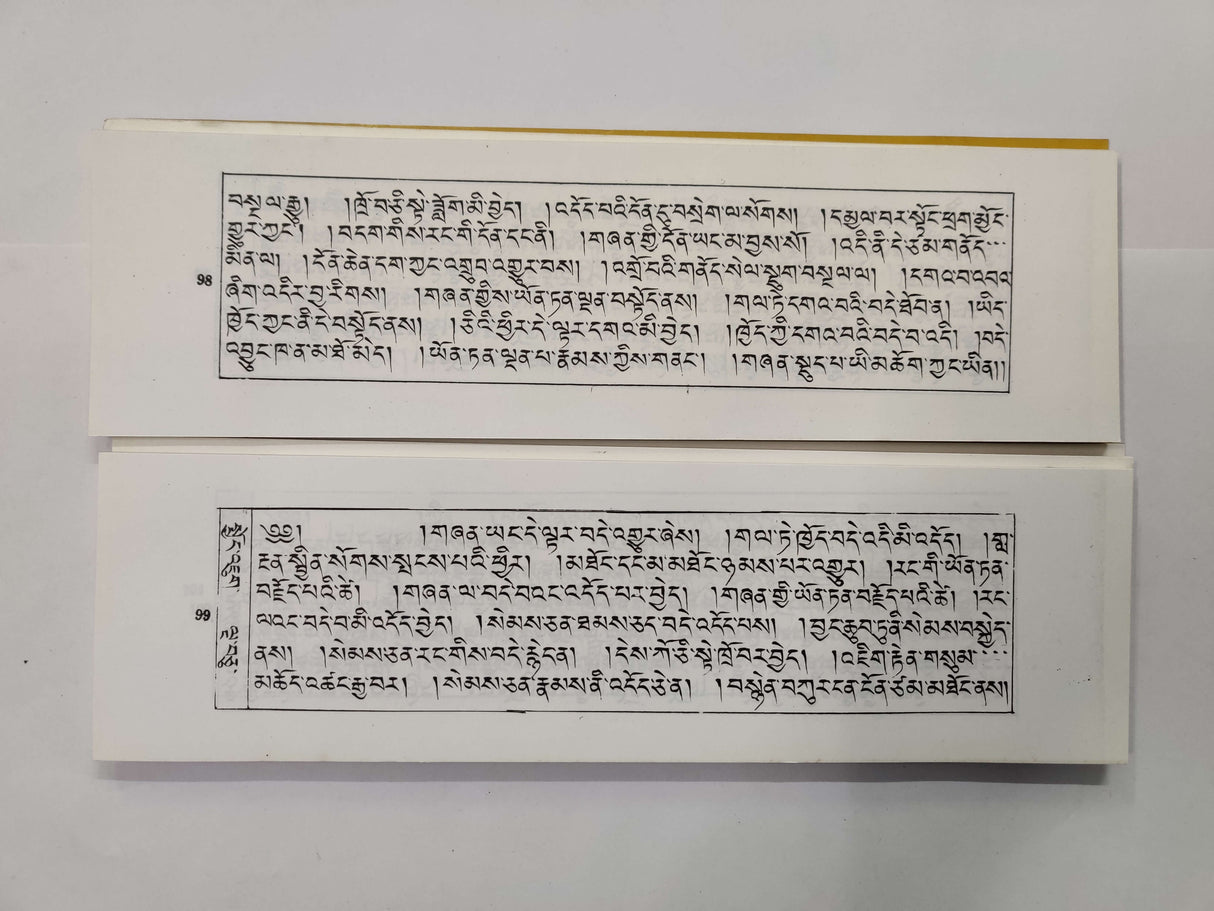 98
བསྔལ་རྒྱུ། །ཁྲོ་བ་ཅི་སྟེ་ཟློག་མི་བྱེད། །འདོད་པའི་དོན་དུ་བསྲེག་ལ་སོགས། །དམྱལ་བར་སྟོང་ཕྲག་མྱོང་
གྱུར་ཀྱང་། །བདག་གིས་རང་གི་དོན་དང་ནི། །གཞན་གྱི་དོན་ཡང་མ་བྱས་སོ། །འདི་ནི་དེ་ཙམ་གནོད་
མིན་ལ། །དོན་ཆེན་དག་ཀྱང་འགྲུབ་འགྱུར་བས། །འགྲོ་བའི་གནོད་སེལ་སྡུག་བསྔལ་ལ། །དགའ་བ་འབའ
ཞིག་འདིར་བྱ་རིགས། །གཞན་གྱིས་ཡོན་ཏན་ལྡན་བསྟོད་ནས། །གལ་ཏེ་དགའ་བའི་བདེ་ཐོབ་ན། །ཡིད་
ཁྱོད་ཀྱང་ནི་དེ་བསྟོད་ནས། །ཅིའི་ཕྱིར་དེ་ལྟར་དགའ་མི་བྱེད། །ཁྱོད་ཀྱི་དགའ་བའི་བདེ་བ་འདི། །བདེ་
འབྱུང་ཁ་ན་མ་ཐོ་མེད། །ཡོན་ཏན་ལྡན་པ་རྣམས་ཀྱིས་གནང་། །གཞན་སྡུད་པ་ཡི་མཆོག་ཀྱང་ཡིན།།
99
སྤྱོད་འཇུག
༄༅། །གཞན་ཡང་དེ་ལྟར་བདེ་འགྱུར་ཞེས། །གལ་ཏེ་ཁྱོད་བདེ་འདི་མི་འདོད། །གླ་
རྔན་སྦྱིན་སོགས་སྤངས་པའི་ཕྱིར། །མཐོང་དང་མ་མཐོང་ཉམས་པར་འགྱུར། །རང་གི་ཡོན་ཏན་
བརྗོད་པའི་ཚེ། །གཞན་ལ་བདེ་བའང་འདོད་པར་བྱེད། །གཞན་གྱི་ཡོན་ཏན་བརྗོད་པའི་ཚེ། །རང་
ལའང་བདེ་བ་མི་འདོད་བྱེད། །སེམས་ཅན་ཐམས་ཅད་བདེ་འདོད་པས། །བྱང་ཆུབ་ཏུ་ནི་སེམས་བསྐྱེད་
ནས། །སེམས་ཅན་རང་གིས་བདེ་རྙེད་ན། །དེས་ཀོ་ཅི་སྟེ་ཁྲོ་བར་བྱེད། །འཇིག་རྟེན་གསུམ་
མཆོད་འཚང་རྒྱ་བར། །སེམས་ཅན་རྣམས་ནི་འདོད་ཅེ་ན། །བསྙེན་བཀུར་ངན་ངོན་ཙམ་མཐོང་ནས།